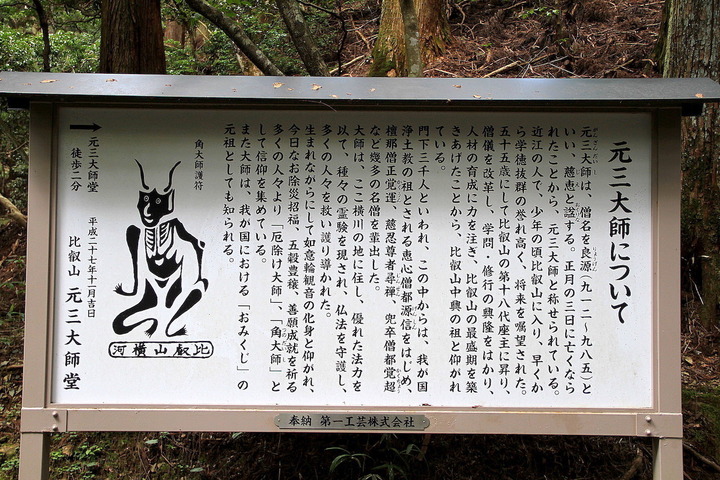 元三大師について
元三大師は、僧名を良源（九一二〜九八五）と
がんさんだいし
りょうげん
いい、慈恵と諡する。正月の三日に亡くなら
じえ
おくりな
れたことから、元三大師と称せられている。
近江の人で、少年の頃比叡山に入り、早くか
ら学徳抜群の誉れ高く、将来を嘱望された。
五十五歳にして比叡山の第十八代座主に昇り、
僧儀を改革し、学問・修行の興隆をはかり、
人材の育成に力を注ぎ、比叡山の最盛期を築
きあげたことから、比叡山中興の祖と仰がれ
ている。
門下三千人といわれ、この中からは、我が国
浄土教の祖とされる恵心僧都源信をはじめ、
檀那僧正覚運、慈忍尊者尋禅、兜卒僧都覚超
など幾多の名僧を輩出した。
大師は、ここ横川の地に住し、優れた法力を
以て、種々の霊験を現され、仏法を守護し、
多くの人々を救い護り導かれた。
生まれながらにして如意輪観音の化身と仰がれ、
今日なお除災招福、五穀豊穣、善願成就を祈る
多くの人々より「厄除け大師」、「角大師」と
して信仰を集めている。
また大師は、我が国における「おみくじ」の
元祖としても知られる。
角大師護符
比叡山横川
平成二十七年十一月吉日
比叡山 元三大師堂
→
元三大師堂
徒歩二分
奉納 第一工芸株式会社